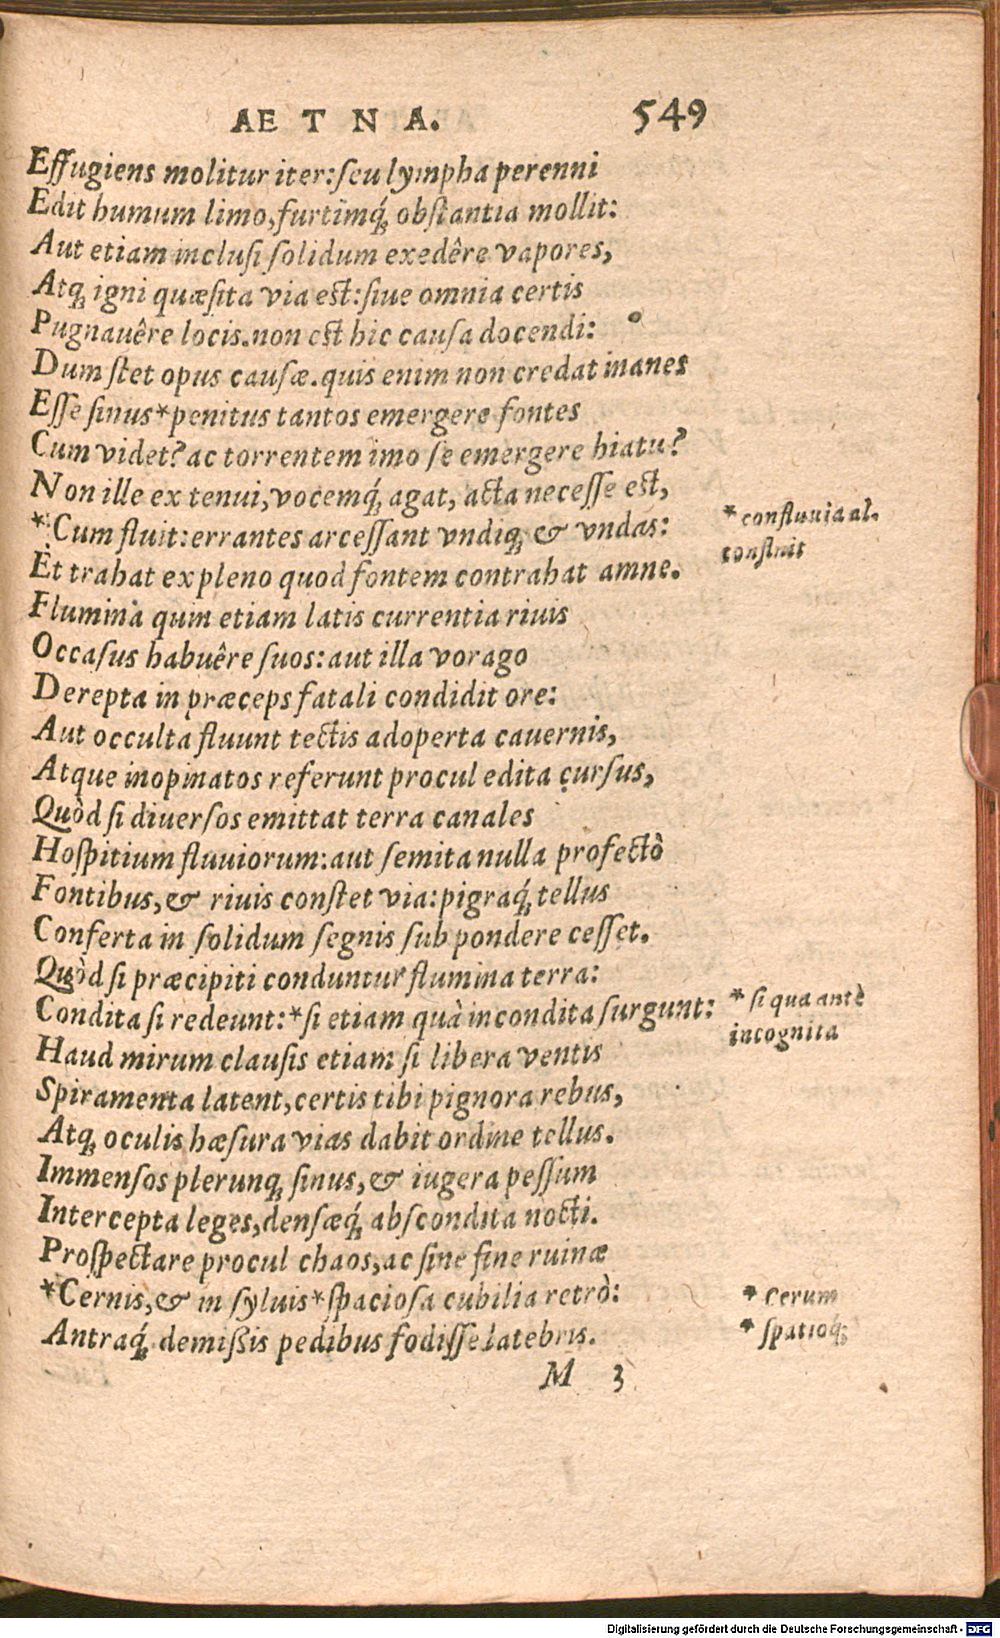 AETNA. 549
Effugiens molitur iter: seu lympha perenni
Edit humum limo, furtimq́; obstantia mollit:
Aut etiam inclusi solidum exedêre vapores,
Atq; igni quæsita via est: siue omnia certis
Pugnauêre locis. non est hic causa docendi:
Dum stet opus causæ. quis enim non credat inanes
Esse sinus * penitus tantos emergere fontes
Cum videt? ac torrentem imo se emergere hiatu?
Non ille ex tenui, vocemq́; agat, acta necesse est,
* Cum fluit: errantes arcessant vndiq; & vndas:
* confluuia al.
confluit
Et trahat ex pleno quod fontem contrahat amne.
Flumina quin etiam latis currentia riuis
Occasus habuêre suos: aut illa vorago
Derepta in præceps fatali condidit ore:
Aut occulta fluunt tectis adoperta cauernis,
Atque inopinatos referunt procul edita cursus,
Quòd si diuersos emittat terra canales
Hospitium fluuiorum: aut semita nulla profectò
Fontibus, & riuis constet via: pigraq́; tellus
Conferta in solidum segnis sub pondere cesset.
Quòd si præcipiti conduntur flumina terra:
Condita si redeunt: * si etiam quà incondita surgunt:
* si qua antè
incognita
Haud mirum clausis etiam si libera ventis
Spiramenta latent, certis tibi pignora rebus,
Atq; oculis hæsura vias dabit ordine tellus.
Immensos plerunq; sinus, & iugera pessum
Intercepta leges, densæq́; abscondita nocti.
Prospectare procul chaos, ac sine fine ruinæ
* Cernis, & in syluis * spaciosa cubilia retrò:
* Cerum
* spatioq;
Antraq́; demißis pedibus fodisse latebris.
M 3
Digitalisierung gefördert durch die Deutsche Forschungsgemeinschaft - DFG